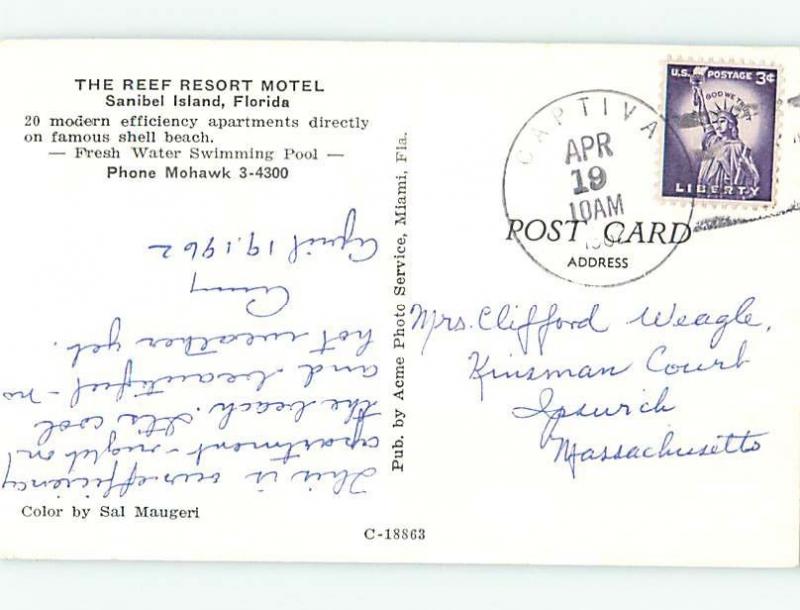 THE REEF RESORT MOTEL
Sanibel Island, Florida
20 modern efficiency apartments directly
on famous shell beach.
— Fresh Water Swimming Pool —
Phone Mohawk 3-4300
This is our efficiency
apartment - right on
the beach. It's cool
and beautiful - no
hot weather yet.
April 19, 1962
Color by Sal Maugeri
Pub. by Acme Photo Service, Miami, Fla.
C-18863
CAPTIVA
APR
19
10AM
U.S. POSTAGE 3¢
IN GOD WE TRUST
LIBERTY
POST CARD
ADDRESS
Mrs. Clifford Weagle,
Kinsman Court
Ipswich
Massachusetts